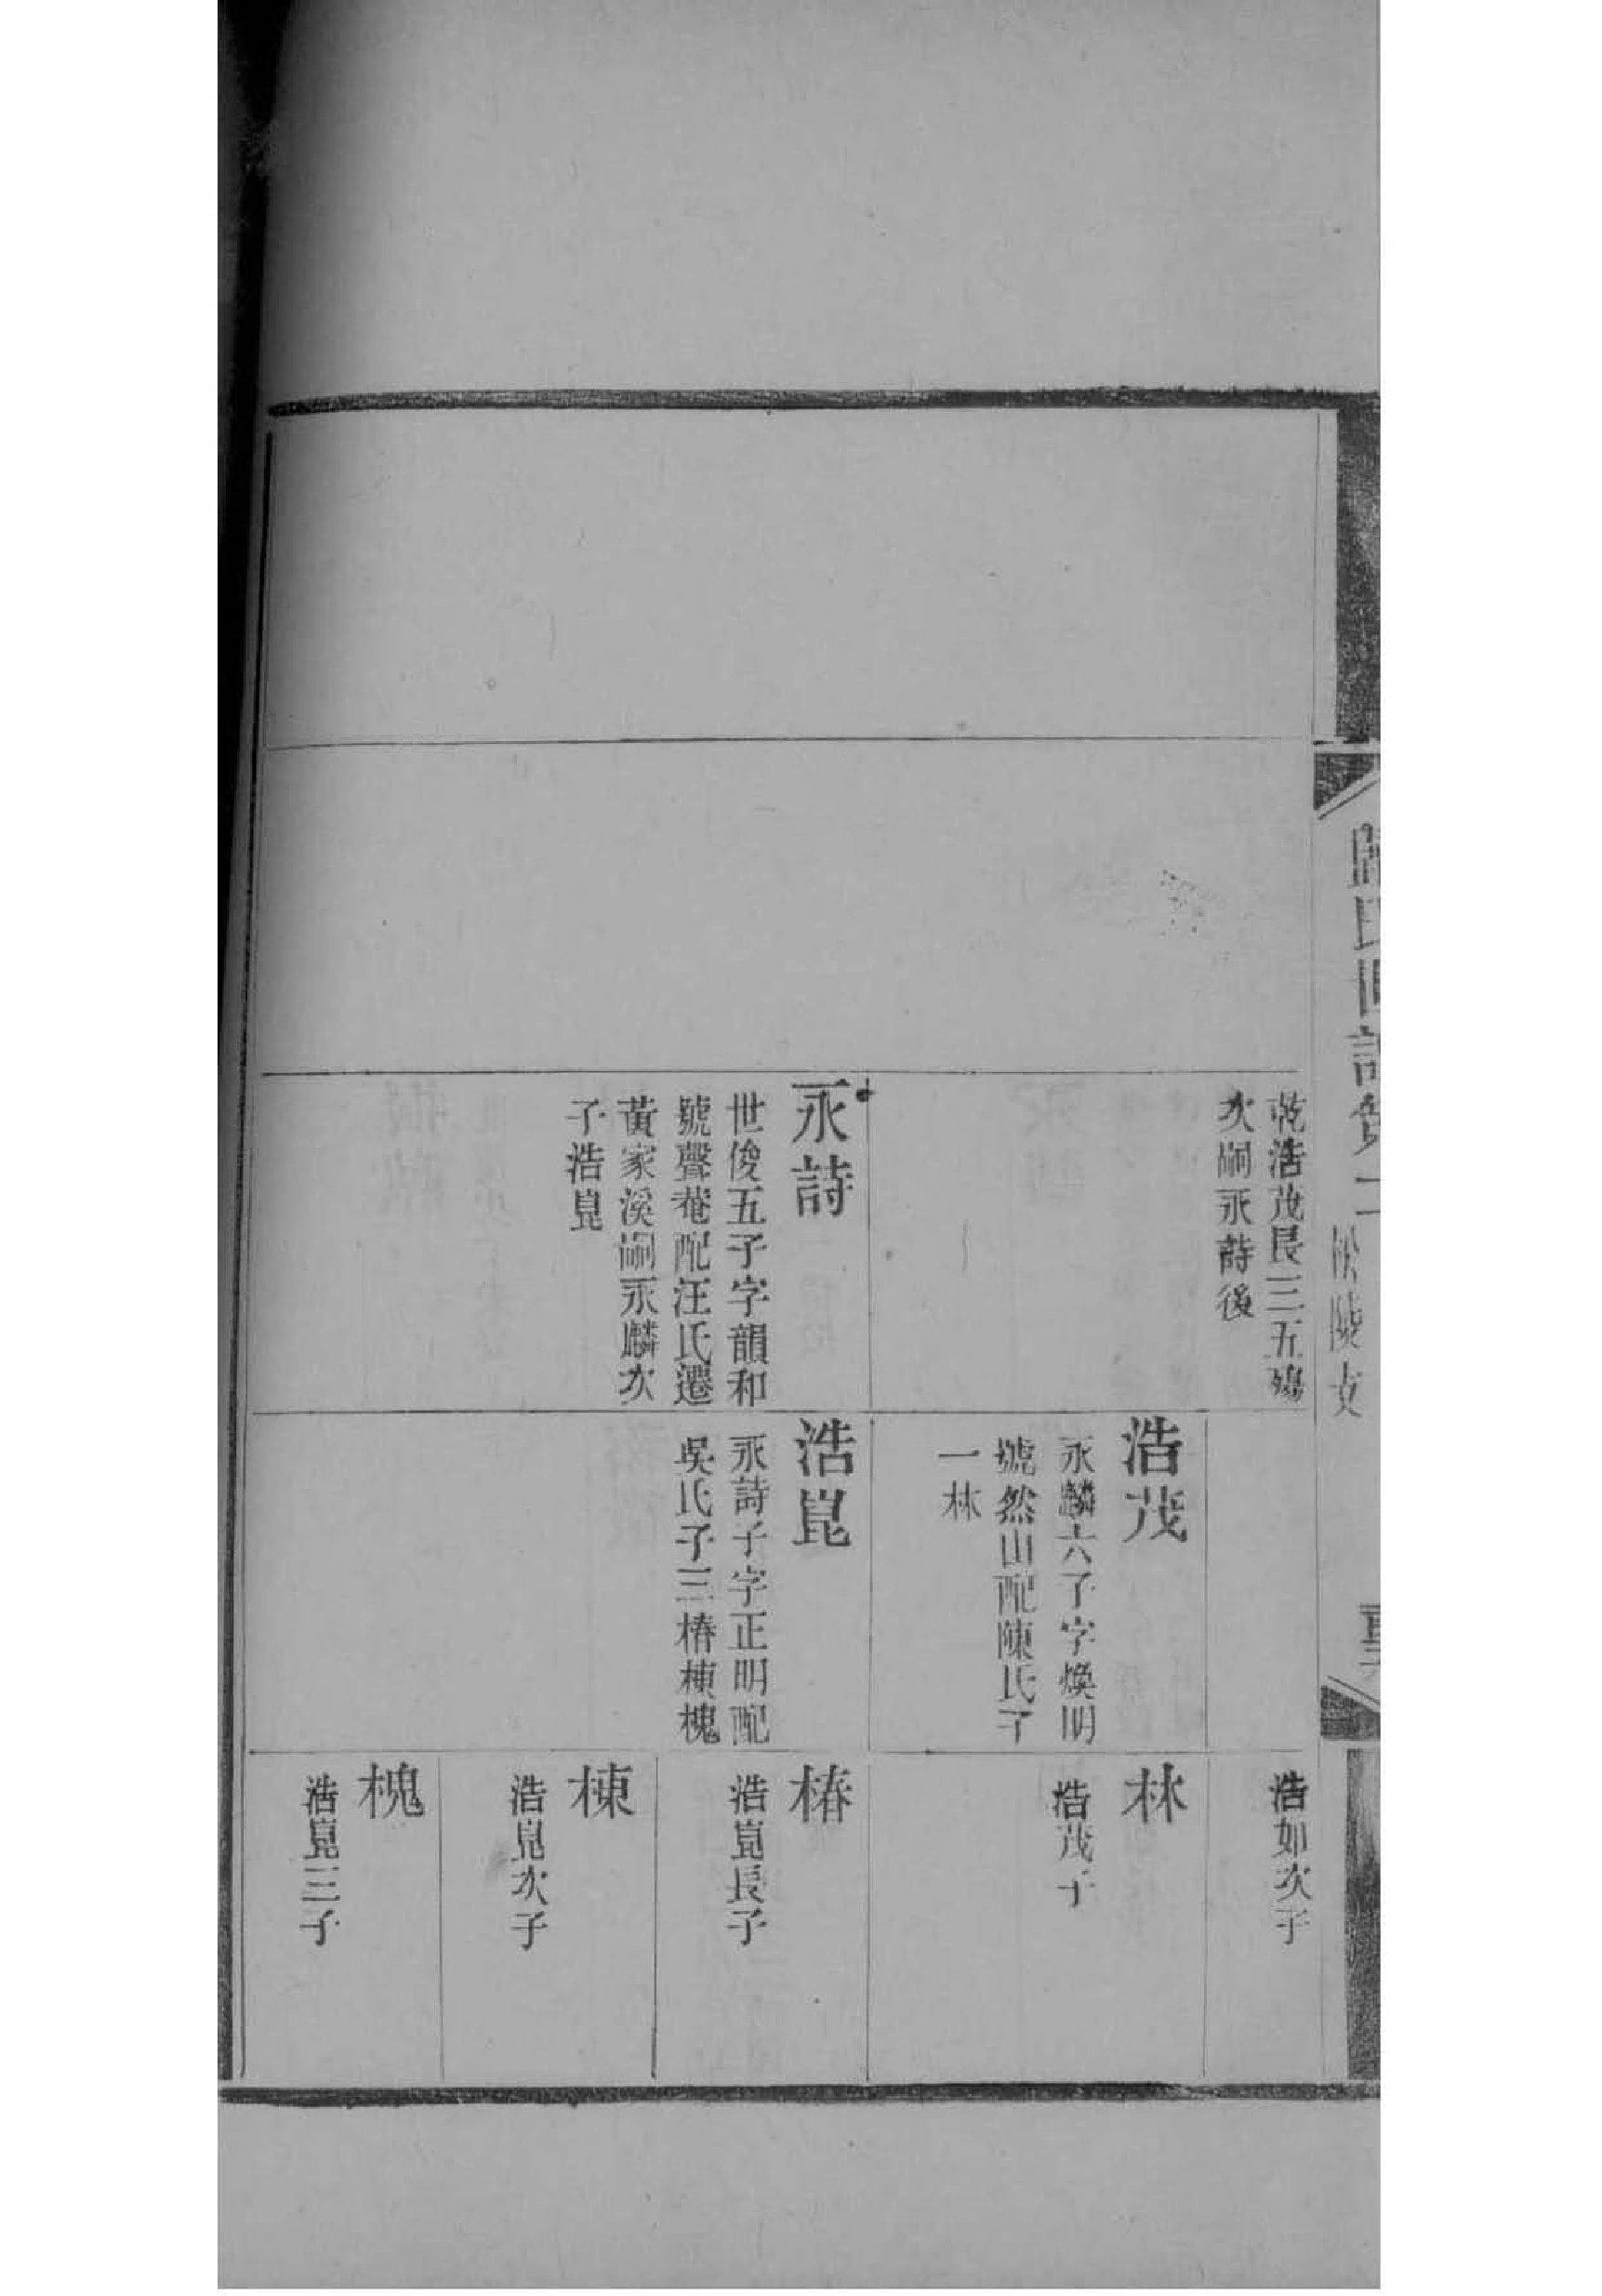 氏世譜卷二
松陵支
乾浩茂艮三五殤
次嗣永詩後
永詩
世俊五子字韻和
號聲菴配汪氏遷
黃家溪嗣永麟次
子浩崑
浩茂
永麟六子字煥明
號然山配陳氏子
一林
浩崑
永詩子字正明配
吳氏子三椿棟槐
浩如次子
林
浩茂子
椿
浩崑長子
棟
浩崑次子
槐
浩崑三子